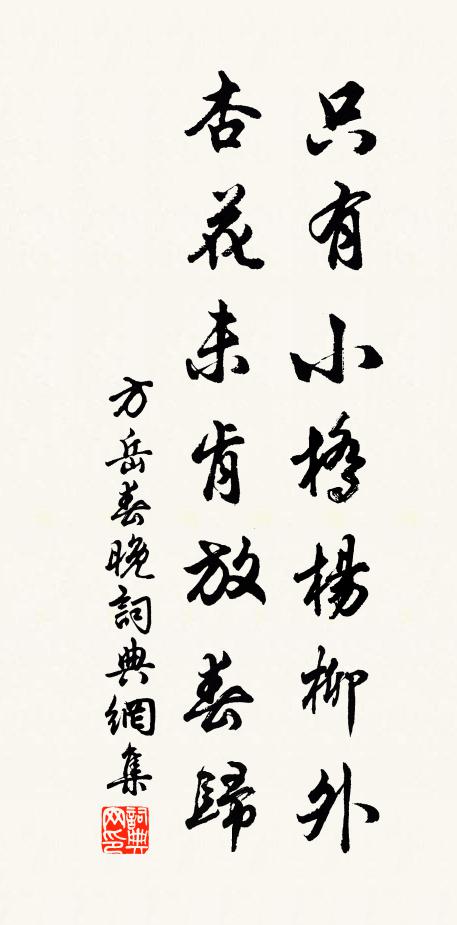 只有小橋楊柳外
杏花未肯放春歸
方岳春晚詞典網集
詞典网印